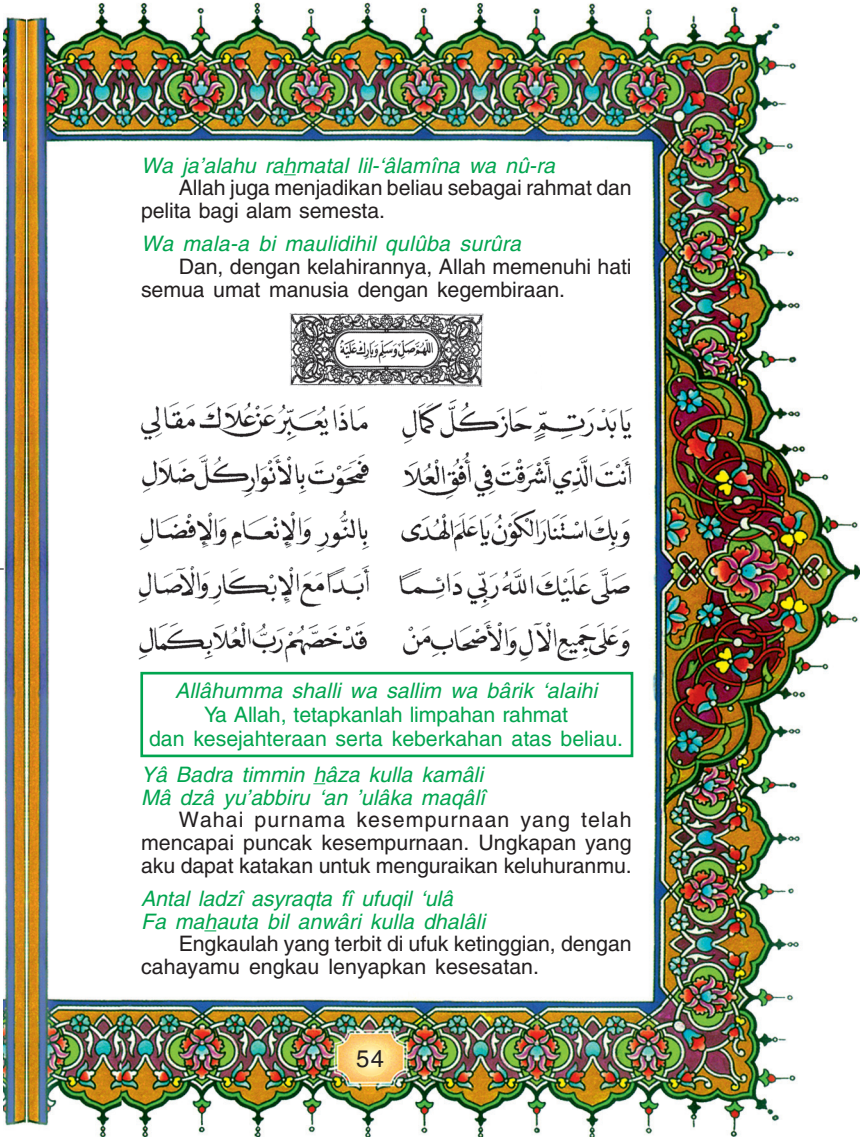 Wa ja’alahu rahmatal lil-‘âlamîna wa nû-ra
Allah juga menjadikan beliau sebagai rahmat dan
pelita bagi alam semesta.
Wa mala-a bi maulidihil qulûba surûra
Dan, dengan kelahirannya, Allah memenuhi hati
semua umat manusia dengan kegembiraan.
اللَّهُمَّ صَلِّ وَسَلِّمْ وَبَارِكْ عَلَيْهِ
يَا بَدْرَ تِمٍّ حَازَ كُلَّ كَمَالِ مَاذَا يُعَبِّرُ عَنْ عُلَاكَ مَقَالِي
أَنْتَ الَّذِي أَشْرَقْتَ فِي أُفُقِ الْعُلَا فَمَحَوْتَ بِالْأَنْوَارِ كُلَّ ضَلَالِ
وَبِكَ اسْتَنَارَ الْكَوْنُ يَا عَلَمَ الْهُدَى بِالنُّورِ وَالْإِنْعَامِ وَالْإِفْضَالِ
صَلَّى عَلَيْكَ اللَّهُ رَبِّي دَائِمًا أَبَدًا مَعَ الْإِبْكَارِ وَالْآصَالِ
وَعَلَى جَمِيعِ الْآلِ وَالْأَصْحَابِ مَنْ قَدْ خَصَّهُمْ رَبُّ الْعُلَا بِكَمَالِ
Allâhumma shalli wa sallim wa bârik ‘alaihi
Ya Allah, tetapkanlah limpahan rahmat
dan kesejahteraan serta keberkahan atas beliau.
Yâ Badra timmin hâza kulla kamâli
Mâ dzâ yu’abbiru ‘an ’ulâka maqâlî
Wahai purnama kesempurnaan yang telah
mencapai puncak kesempurnaan. Ungkapan yang
aku dapat katakan untuk menguraikan keluhuranmu.
Antal ladzî asyraqta fî ufuqil ‘ulâ
Fa mahauta bil anwâri kulla dhalâli
Engkaulah yang terbit di ufuk ketinggian, dengan
cahayamu engkau lenyapkan kesesatan.
54